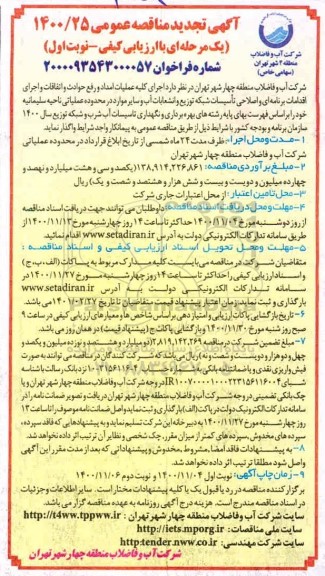 آگهی تجدید مناقصه عمومی ۱۴۰۰/۲۵
(یک مرحله ای با ارزیابی کیفی -نوبت اول)
شماره فراخوان ۲۰۰۰۰۹۳۵۴۳۰۰۰۰۵۷
شرکت آب و فاضلاب
منطقه ۴ شهر تهران
(سهامی خاص)
شرکت آب و فاضلاب منطقه چهار شهر تهران در نظر دارد اجرای کلیه عملیات امداد و رفع حوادث و اتفاقات و اجرای
اقدامات برنامه ای و اصلاحی تأسیسات شبکه توزیع و انشعابات آب و سایر موارد در محدوده عملیاتی ناحیه سلیمانیه
خود را بر اساس فهرست بهای پایه رشته های بهره برداری و نگهداری تاسیسات آب شرب و شبکه توزیع سال ۱۴۰۰
سازمان برنامه و بودجه کشور با شرایط ذیل از طریق مناقصه عمومی به پیمانکار واجد شرایط واگذار نماید.
۱-مدت و محل اجرا: ظرف مدت ۲۴ ماه شمسی از تاریخ ابلاغ قرارداد در محدوده عملیاتی
شرکت آب و فاضلاب منطقه چهار شهر تهران
۲-مبلغ برآوردی مناقصه: ۱۳۸,۹۱۴,۲۲۶,۸۶۱ (یکصد و سی و هشت میلیارد و نهصد و
چهارده میلیون و دویست و بیست و شش هزار و هشتصد و شصت و یک) ریال
۳-محل تامین اعتبار: از محل اعتبارات جاری شرکت
۴-مهلت و محل دریافت اسناد مناقصه: داوطلبان می توانند جهت دریافت اسناد مناقصه
از روز دوشنبه مورخ ۱۴۰۰/۱۱/۰۴ حداکثر تا ساعت ۱۴ روز چهارشنبه مورخ ۱۴۰۰/۱۱/۱۳ از
طریق سامانه تدارکات الکترونیکی دولت به آدرس www.setadiran.ir اقدام نمایند
۵-مهلت و محل تحویل اسناد ارزیابی کیفی و اسناد مناقصه:
متقاضیان شرکت در مناقصه می بایست کلیه مدارک مربوط به پاکات (الف، ب، ج)
و اسناد ارزیابی کیفی را حداکثر تا ساعت ۱۴ روز چهارشنبه مورخ ۱۴۰۰/۱۱/۲۷ در
سامانه تدارکات الکترونیکی دولت به آدرس www.setadiran.ir
بارگذاری و ثبت نمایند، زمان اعتبار پیشنهاد قیمت متقاضیان تا تاریخ ۱۴۰۱/۰۲/۲۷ می باشد.
۶-تاریخ بازگشایی پاکات ارزیابی و امتیازدهی بر اساس شاخص ها و معیارهای ارزیابی کیفی در ساعت ۹
صبح روز شنبه مورخ ۱۴۰۰/۱۱/۳۰ و بازگشایی پاکات ج (پیشنهاد قیمت) در همان روز می باشد.
۷-مبلغ تضمین شرکت در مناقصه ۲,۸۱۹,۱۴۲,۲۶۹ (دو میلیارد و هشتصد و نوزده میلیون و یکصد و
چهل و دو هزار و دویست و شصت و نه) ریال می باشد که شرکت کنندگان در مناقصه می توانند به صورت
در وجه شرکت آب و فاضلاب منطقه چهار شهر تهران و یا
چک بانکی تضمینی در وجه شرکت آب و فاضلاب منطقه چهار شهر تهران دریافت و تصویر ضمانت نامه را در
سامانه تدارکات الکترونیک دولت در پاکت (الف) بارگذاری و ثبت نماید و اصل ضمانت نامه موصوف را تا ساعت ۱۳
روز چهارشنبه مورخ ۱۴۰۰/۱۱/۲۷ به دبیرخانه این شرکت تسلیم نماید و به پیشنهادهایی که فاقد سپرده،
سپرده های مخدوش، سپرده های کمتر از میزان مقرر، چک شخصی و نظایر آن ترتیب اثر داده نخواهد شد.
۸-به پیشنهادات فاقد امضاء، مشروط، مخدوش و پیشنهاداتی که بعد از مدت مقرر در این آگهی
واصل شود مطلقا ترتیب اثر داده نخواهد شد.
۹-زمان چاپ آگهی: نوبت اول ۱۴۰۰/۱۱/۰۴ و نوبت دوم ۱۴۰۰/۱۱/۰۶
برگزار کننده مناقصه در رد یا قبول یک یا کلیه پیشنهادات مختار است. سایر اطلاعات و جزئیات
در اسناد مناقصه مندرج است. هزینه درج آگهی روزنامه به عهده مناقصه گزار می باشد.
سایت شرکت آب و فاضلاب منطقه چهار شهر تهران: http://t4ww.tppww.ir
سایت ملی مناقصات: http://iets.mporg.ir
سایت شرکت مهندسی: http:tender.nww.co.ir
شرکت آب و فاضلاب منطقه چهار شهر تهران